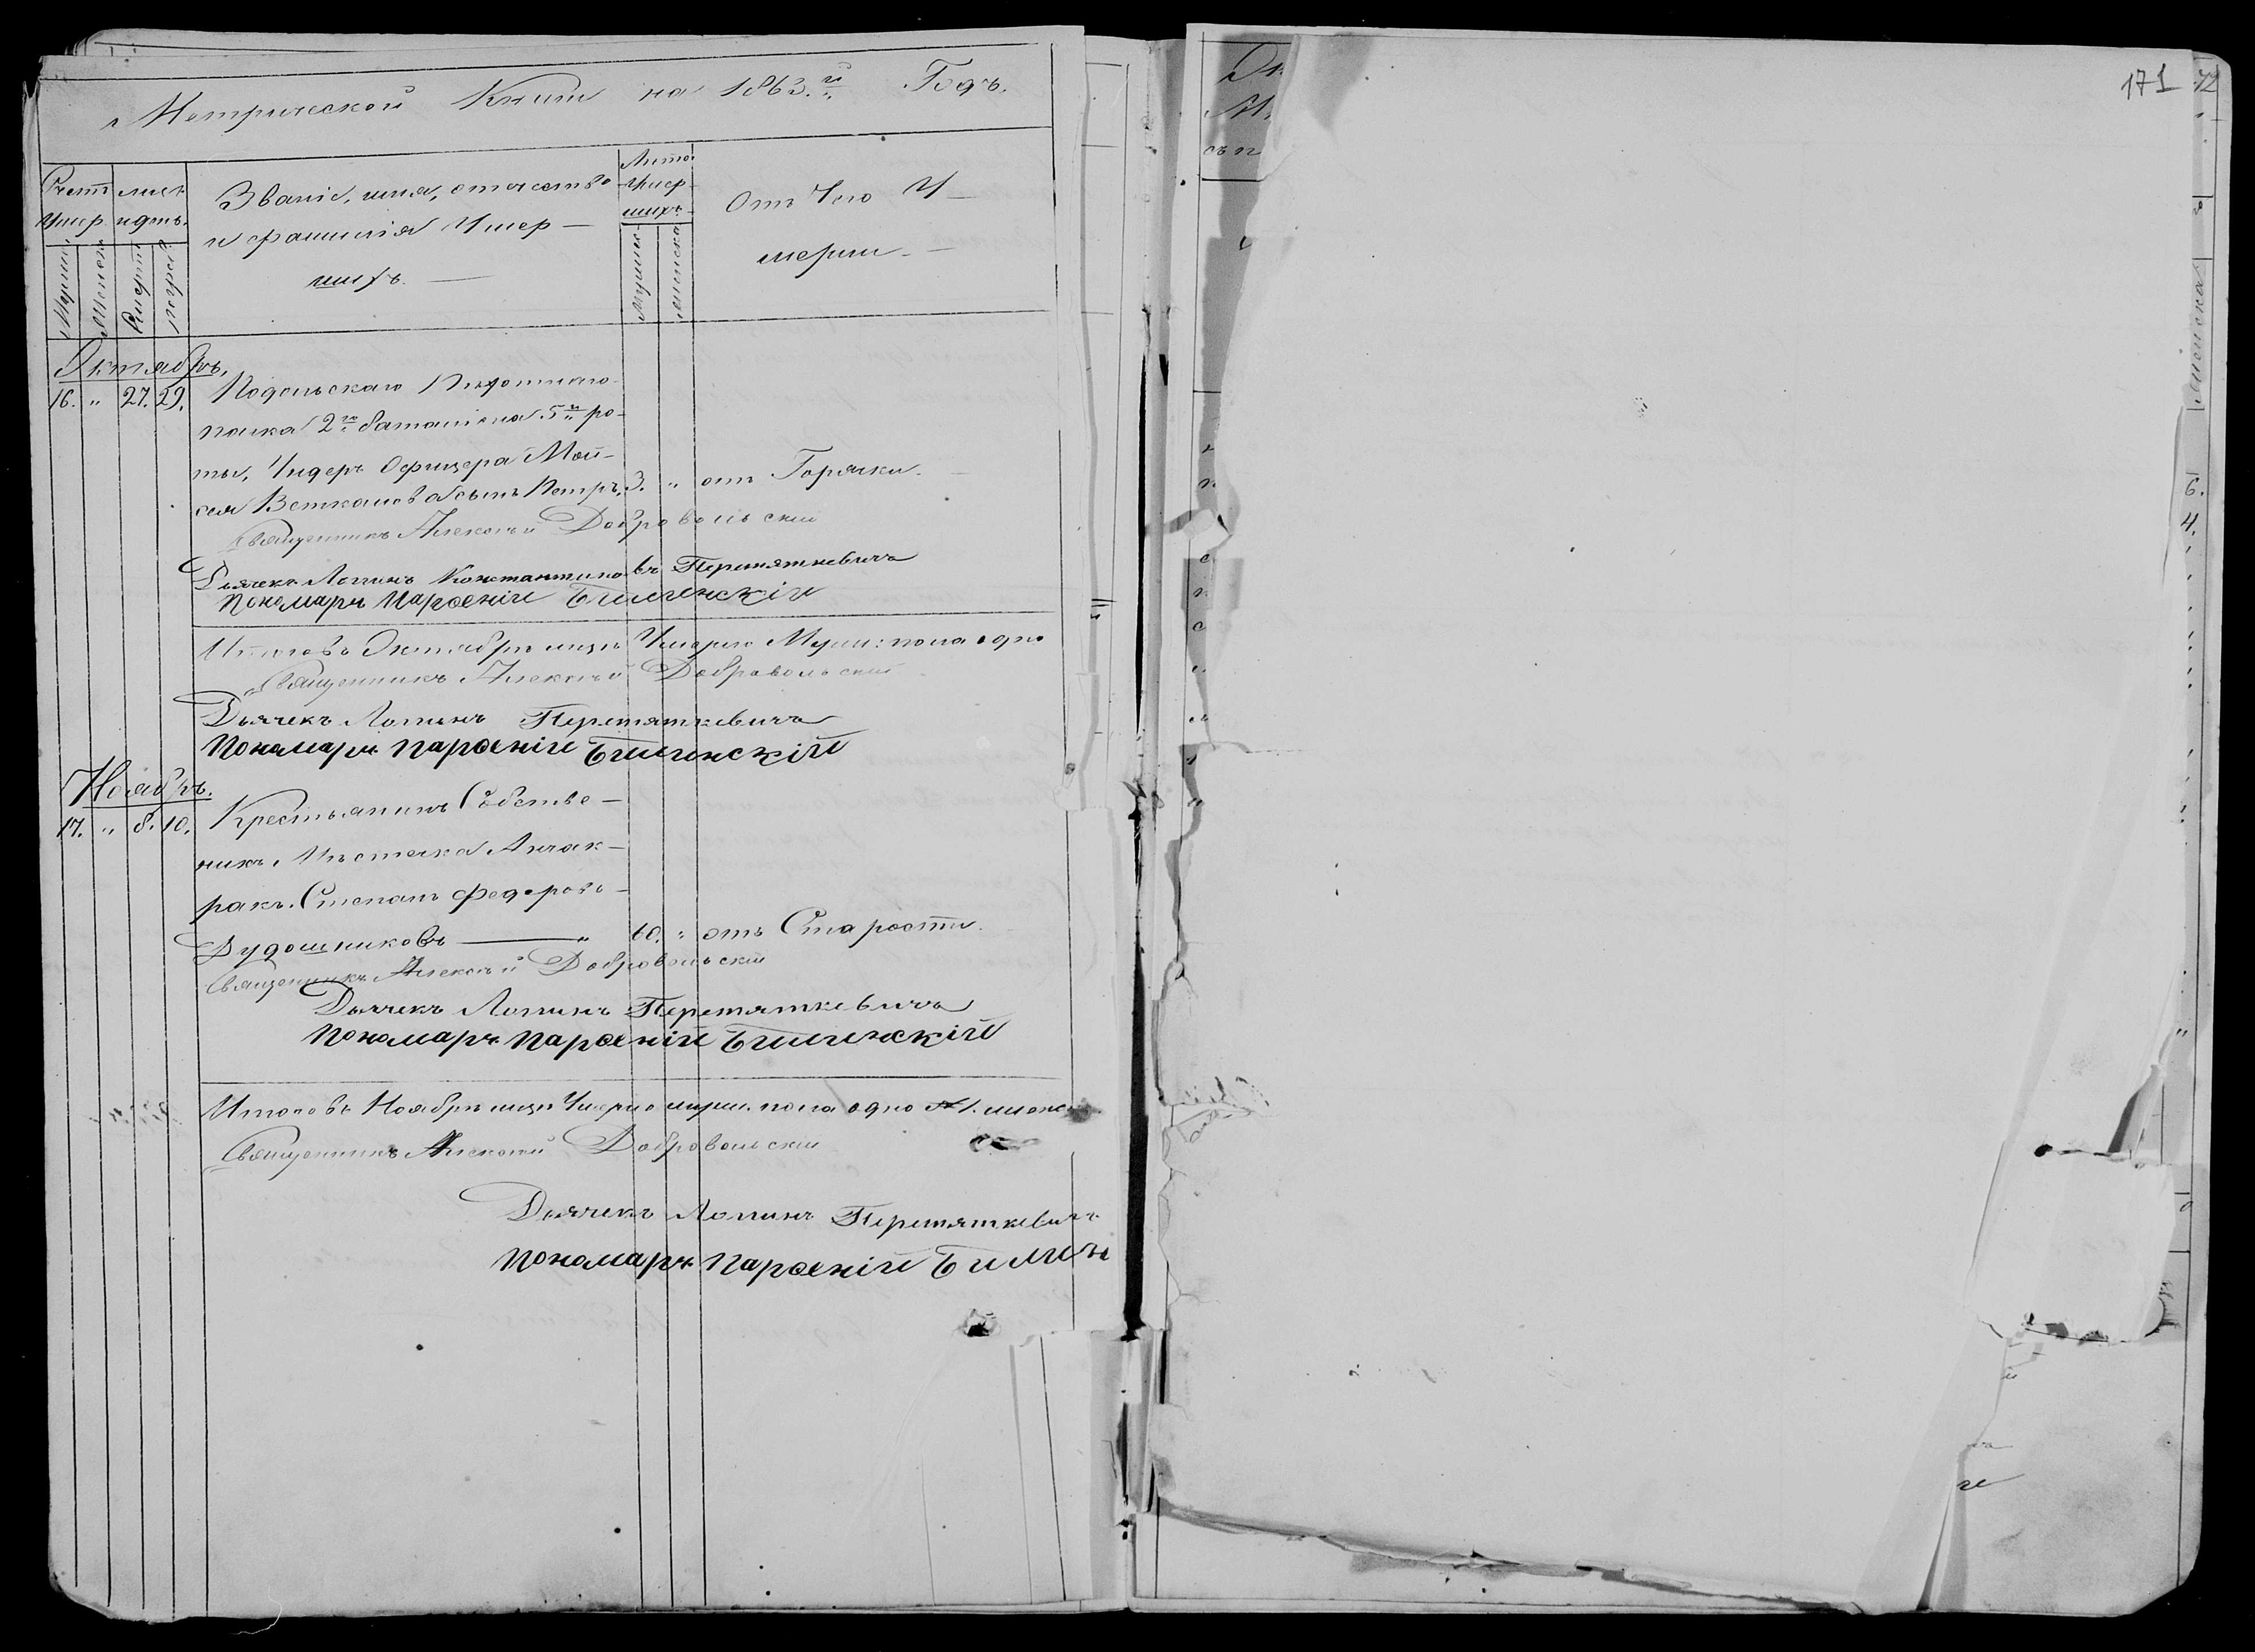 Метрической Книги на 1863.й Годъ.
Счетъ Умер мѣсяц. и день.
Званіе, имя, отчество
и фамилія Умер—
шихъ.
Лѣта Умер-
шихъ.
Отъ Чего У—
мерли.
Мужес.
Женск.
Смерти
погреб.
Мужеск.
Женска
Октябрь.
16. " 27. 29. Подольскаго Пѣхотнаго
полка 2го баталіона 5й ро-
ты, Ундеръ Офицера Мой-
сея Веткалова сынъ Петръ. 3. " отъ Горячки.
Священникъ Алексѣй Добровольскій
Дьячекъ Логинъ Константиновъ Перетяткевичъ
Пономарь Парѳеній Билинскій
Итого въ Октябрѣ мцѣ Умерло Муж: пола одно
Священникъ Алексѣй Добровольскій
Дьячекъ Логинъ Перетяткевичъ
Пономарь Парѳеній Билинскій
Ноябрь.
17. " 8. 10. Крестьянинъ Собстве—
никъ, Мѣстечка Анчак—
ракъ. Степанъ Федоровъ—
Дудошниковъ — " 60. " отъ Старости.
Священникъ Алексѣй Добровольскій
Дьячекъ Логинъ Перетяткевичъ
Пономарь Парѳеній Билинскій
Итого въ Ноябрѣ мцѣ Умерло муж. пола одно
Священникъ Алексѣй Добровольскій
Дьячекъ Логинъ Перетяткевичъ
Пономарь Парѳеній Билин
171
72
Женска
6.
4.